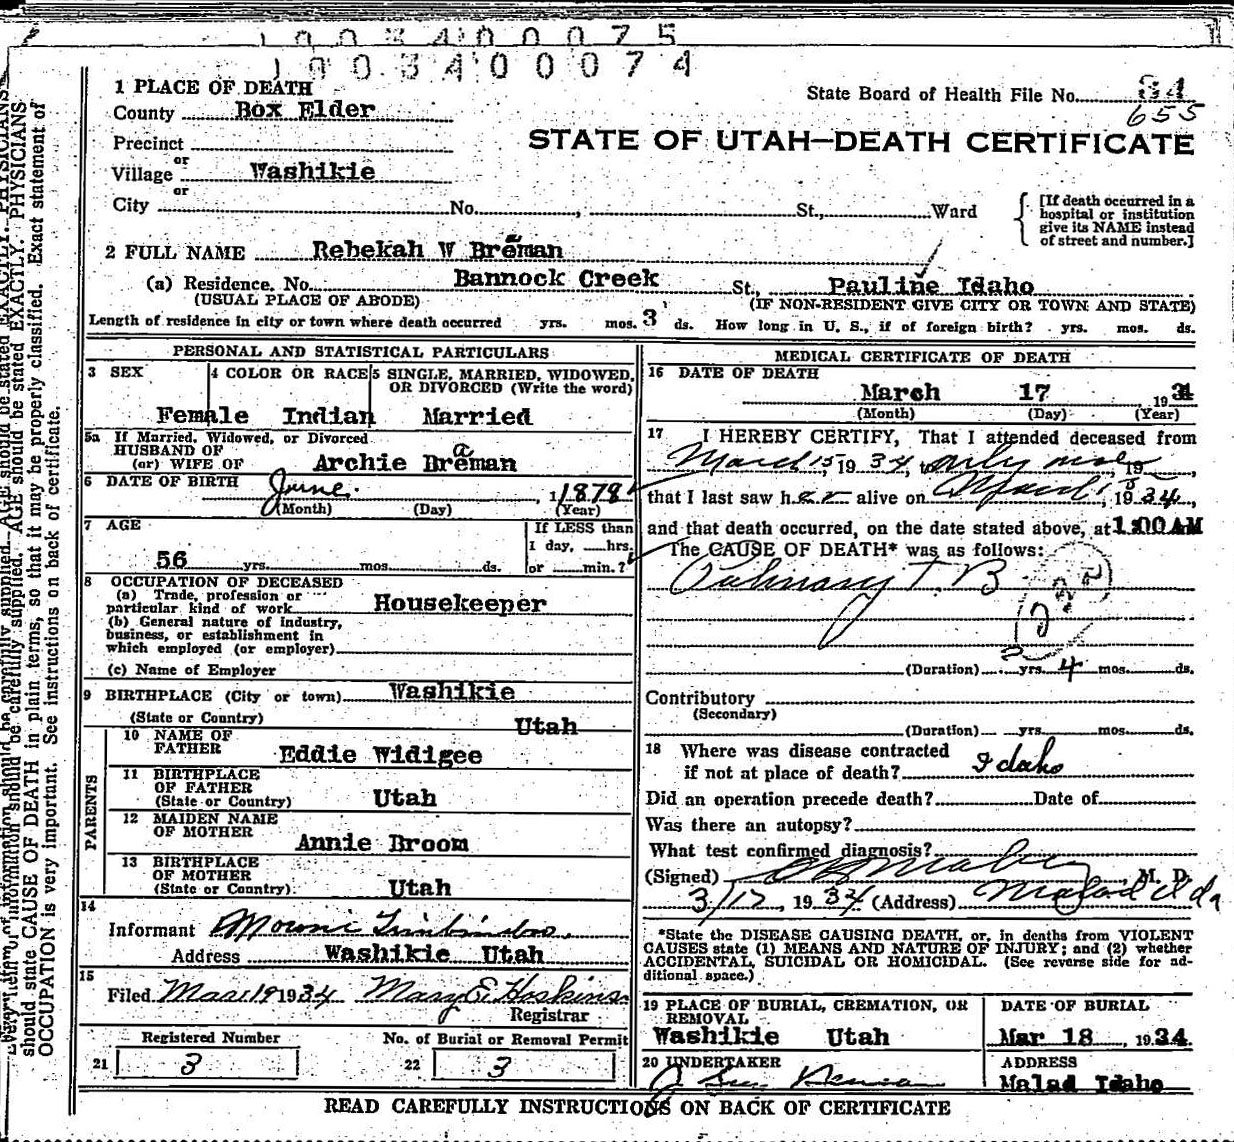 1 0 0 3 4 0 0 0 7 5
1 0 0 3 4 0 0 0 7 4
1 PLACE OF DEATH
County Box Elder
Precinct
or
Village Washikie
or
City No. , St., Ward
State Board of Health File No. 84
655
STATE OF UTAH—DEATH CERTIFICATE
[If death occurred in a
hospital or institution
give its NAME instead
of street and number.]
2 FULL NAME Rebekah W Breman
a
(a) Residence. No. Bannock Creek St., Pauline Idaho
(USUAL PLACE OF ABODE) (IF NON-RESIDENT GIVE CITY OR TOWN AND STATE)
Length of residence in city or town where death occurred yrs. mos. 3 ds. How long in U. S., if of foreign birth? yrs. mos. ds.
PERSONAL AND STATISTICAL PARTICULARS
3 SEX 4 COLOR OR RACE 5 SINGLE, MARRIED, WIDOWED,
OR DIVORCED (Write the word)
Female Indian Married
5a If Married, Widowed, or Divorced
HUSBAND OF
(or) WIFE OF Archie Breman
a
6 DATE OF BIRTH June , 1 1878
(Month) (Day) (Year)
7 AGE If LESS than
1 day, hrs.
56 yrs. mos. ds. or min.?
8 OCCUPATION OF DECEASED
(a) Trade, profession or
particular kind of work Housekeeper
(b) General nature of industry,
business, or establishment in
which employed (or employer)
(c) Name of Employer
9 BIRTHPLACE (City or town) Washikie
(State or Country) Utah
PARENTS
10 NAME OF
FATHER Eddie Widigee
11 BIRTHPLACE
OF FATHER
(State or Country) Utah
12 MAIDEN NAME
OF MOTHER
Annie Broom
13 BIRTHPLACE
OF MOTHER
(State or Country) Utah
14
Informant Moroni
Address Washikie Utah
15
Filed Mar 19 1934 Mary E. Hoskins
Registrar
Registered Number No. of Burial or Removal Permit
21 3 22 3
MEDICAL CERTIFICATE OF DEATH
16 DATE OF DEATH
March 17 1934
(Month) (Day) (Year)
17 I HEREBY CERTIFY, That I attended deceased from
March 15, 1934, to only once, 19 ,
that I last saw her alive on March 15, 1934,
and that death occurred, on the date stated above, at 1:00 AM
The CAUSE OF DEATH* was as follows:
Pulmonary T. B
(Duration) yrs. 4 mos. ds.
Contributory
(Secondary)
(Duration) yrs. mos. ds.
18 Where was disease contracted
if not at place of death? Idaho
Did an operation precede death? Date of
Was there an autopsy?
What test confirmed diagnosis?
(Signed) , M. D.
3/17, 1934 (Address) Malad Ida
*State the DISEASE CAUSING DEATH, or, in deaths from VIOLENT
CAUSES state (1) MEANS AND NATURE OF INJURY; and (2) whether
ACCIDENTAL, SUICIDAL OR HOMICIDAL. (See reverse side for ad-
ditional space.)
19 PLACE OF BURIAL, CREMATION, OR
REMOVAL
Washikie Utah
DATE OF BURIAL
Mar 18 , 1934.
20 UNDERTAKER
ADDRESS
Malad Idaho
READ CAREFULLY INSTRUCTIONS ON BACK OF CERTIFICATE
should be carefully supplied. AGE should be stated EXACTLY. PHYSICIANS
should state CAUSE OF DEATH in plain terms, so that it may be properly classified. Exact statement of
OCCUPATION is very important. See instructions on back of certificate.